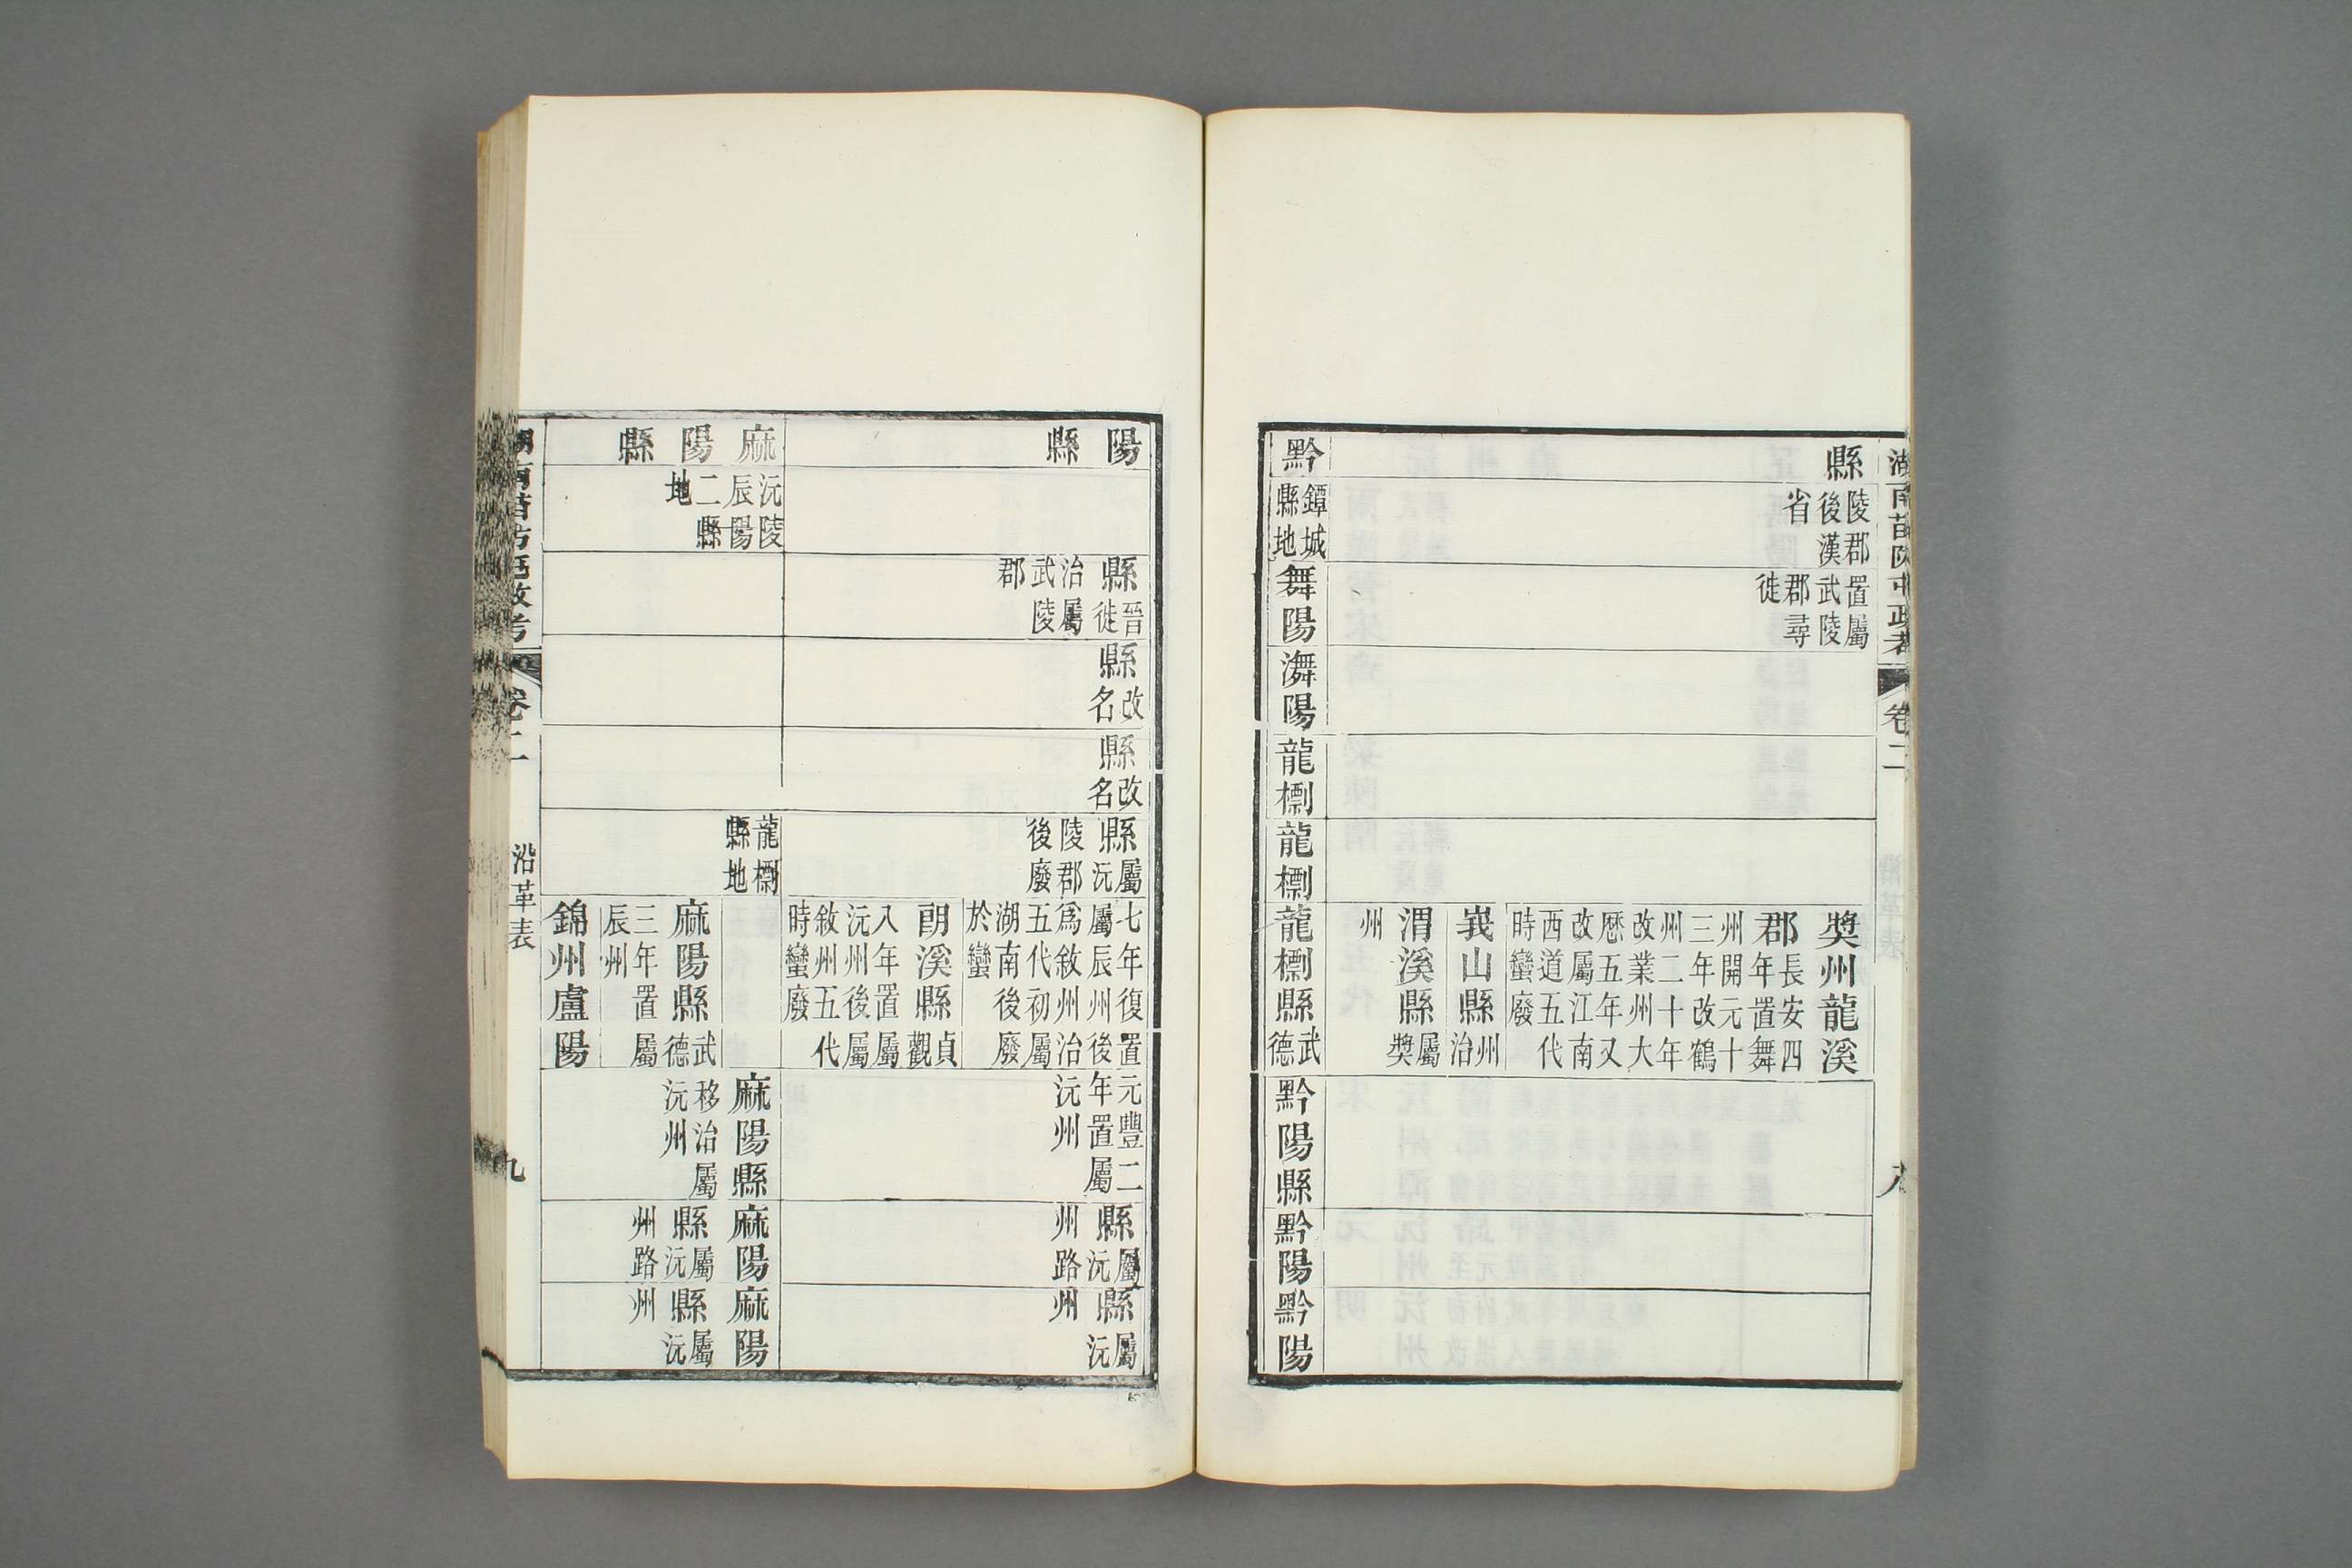 縣
陵郡
後漢
省
置屬
武陵
郡尋
徙
奬州龍溪
郡
長安四
年置舞
州開元十
三年改鶴
州二十年
改業州大
厯五年又
改屬江南
西道五代
時蠻廢
峩山縣
州
治
渭溪縣
屬
奬
州
黔
鐔城
縣地
舞陽
潕陽
龍檦
龍檦
龍檦縣
武
德
黔陽縣
黔陽
黔陽
湖南苗防屯政考
卷二
沿革表
八
陽縣
縣
晉
徙
治屬
武陵
郡
縣
改
名
縣
改
名
縣
屬
沅
陵郡
後廢
七年復置
屬辰州後
爲敘州治
五代初屬
湖南後廢
於蠻
朗溪縣
貞
觀
八年置屬
沅州後屬
敘州五代
時蠻廢
元豐二
年置屬
沅州
縣
屬
沅
州路
縣
屬
沅
州
麻陽縣
沅陵
辰陽
二縣
地
龍檦
縣地
麻陽縣
武
德
三年置屬
辰州
錦州盧陽
麻陽縣
移治屬
沅州
麻陽
縣
屬
沅
州路
麻陽
縣
屬
沅
州
湖南苗防屯政考
卷二
沿革表
九